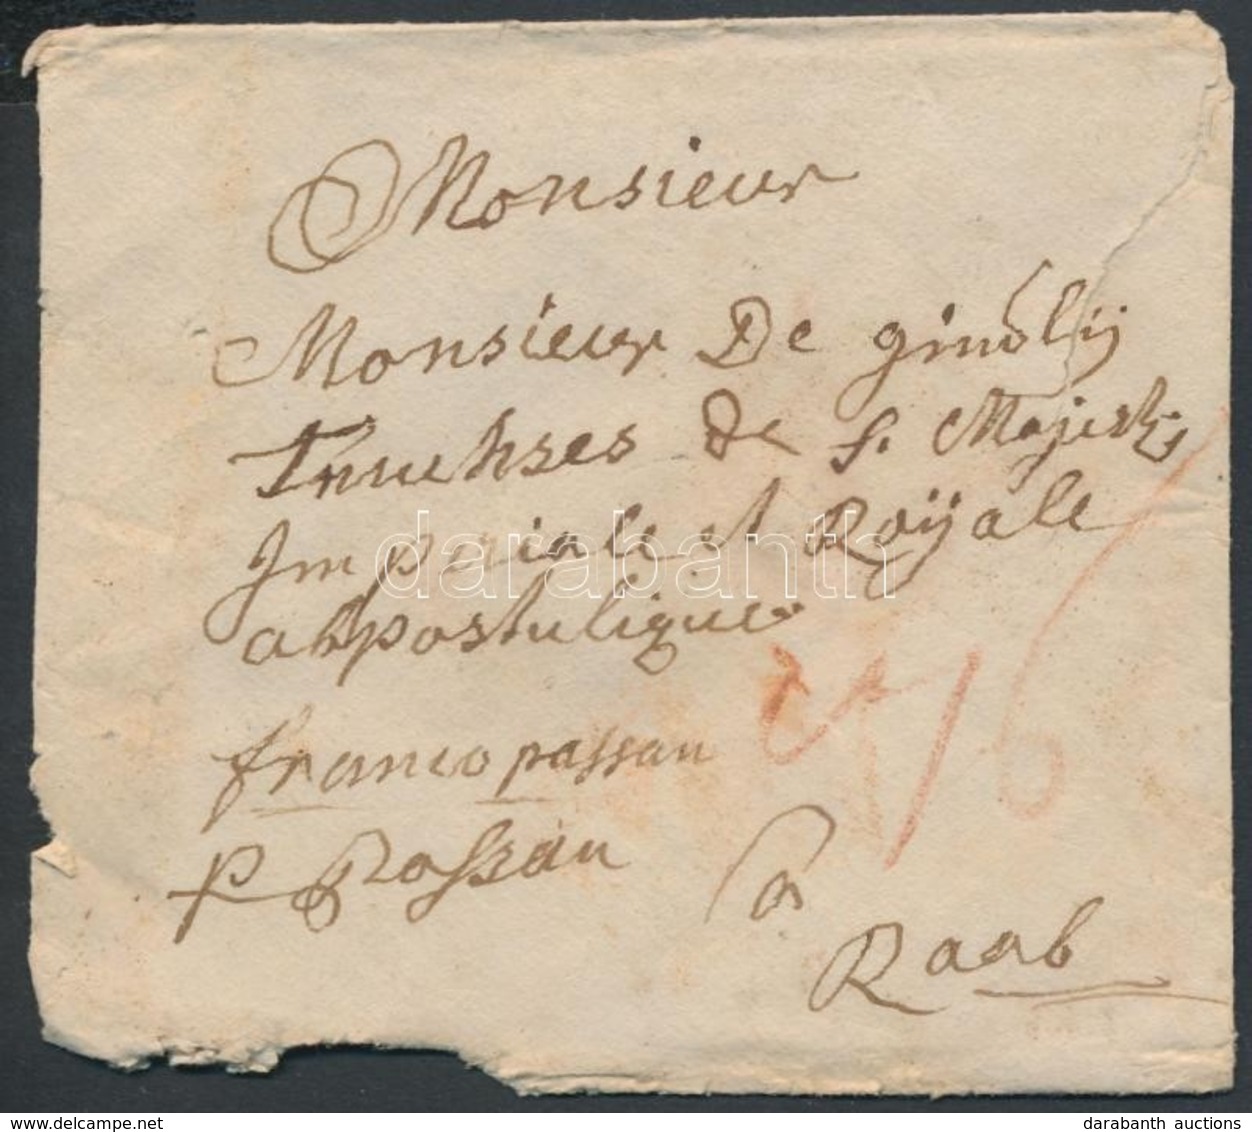 Monsieur
Monsieur De gindlÿ
Truchses De S. Majesté
Imperiale et Roÿale
abpostulique
franco passau
P Passau
a
Raab
darabanth
delcampe.net
darabanth auctions